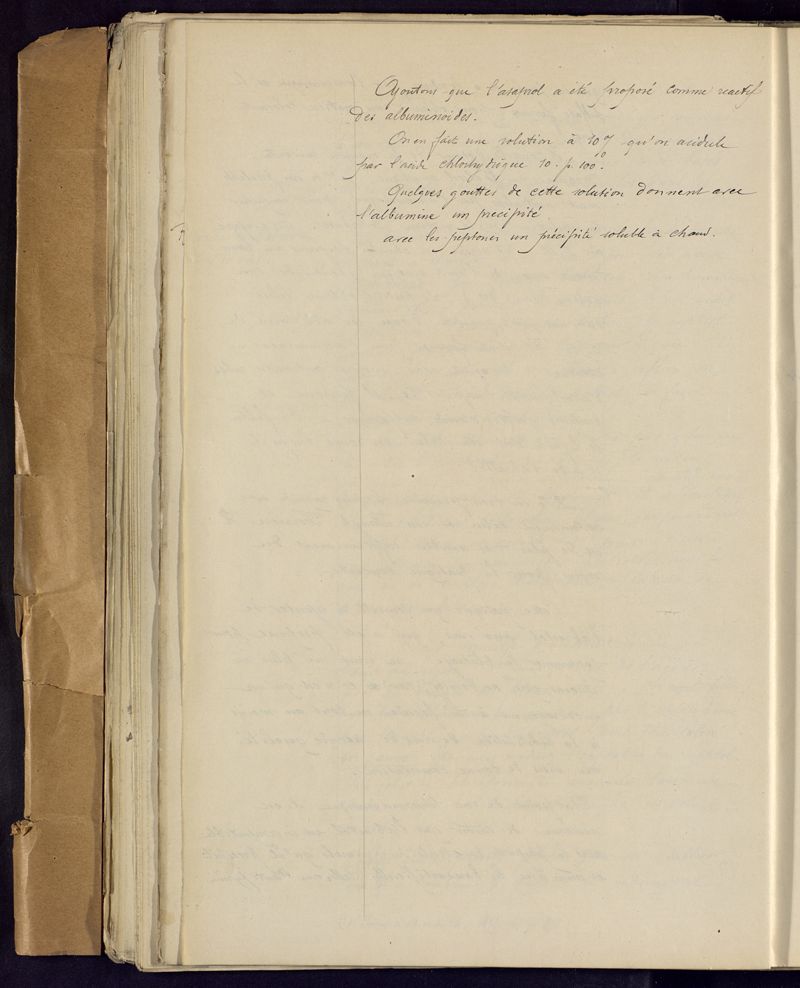 Ajoutons que l'asaprol a été proposé comme reactif
des albuminoïdes.
On en fait une solution à 10% qu'on acidule
par l'acide chlorhydrique 10. p. 100.
Quelques gouttes de cette solution donnent avec
l'albumine un precipité
avec les peptones un précipité soluble à chaud.